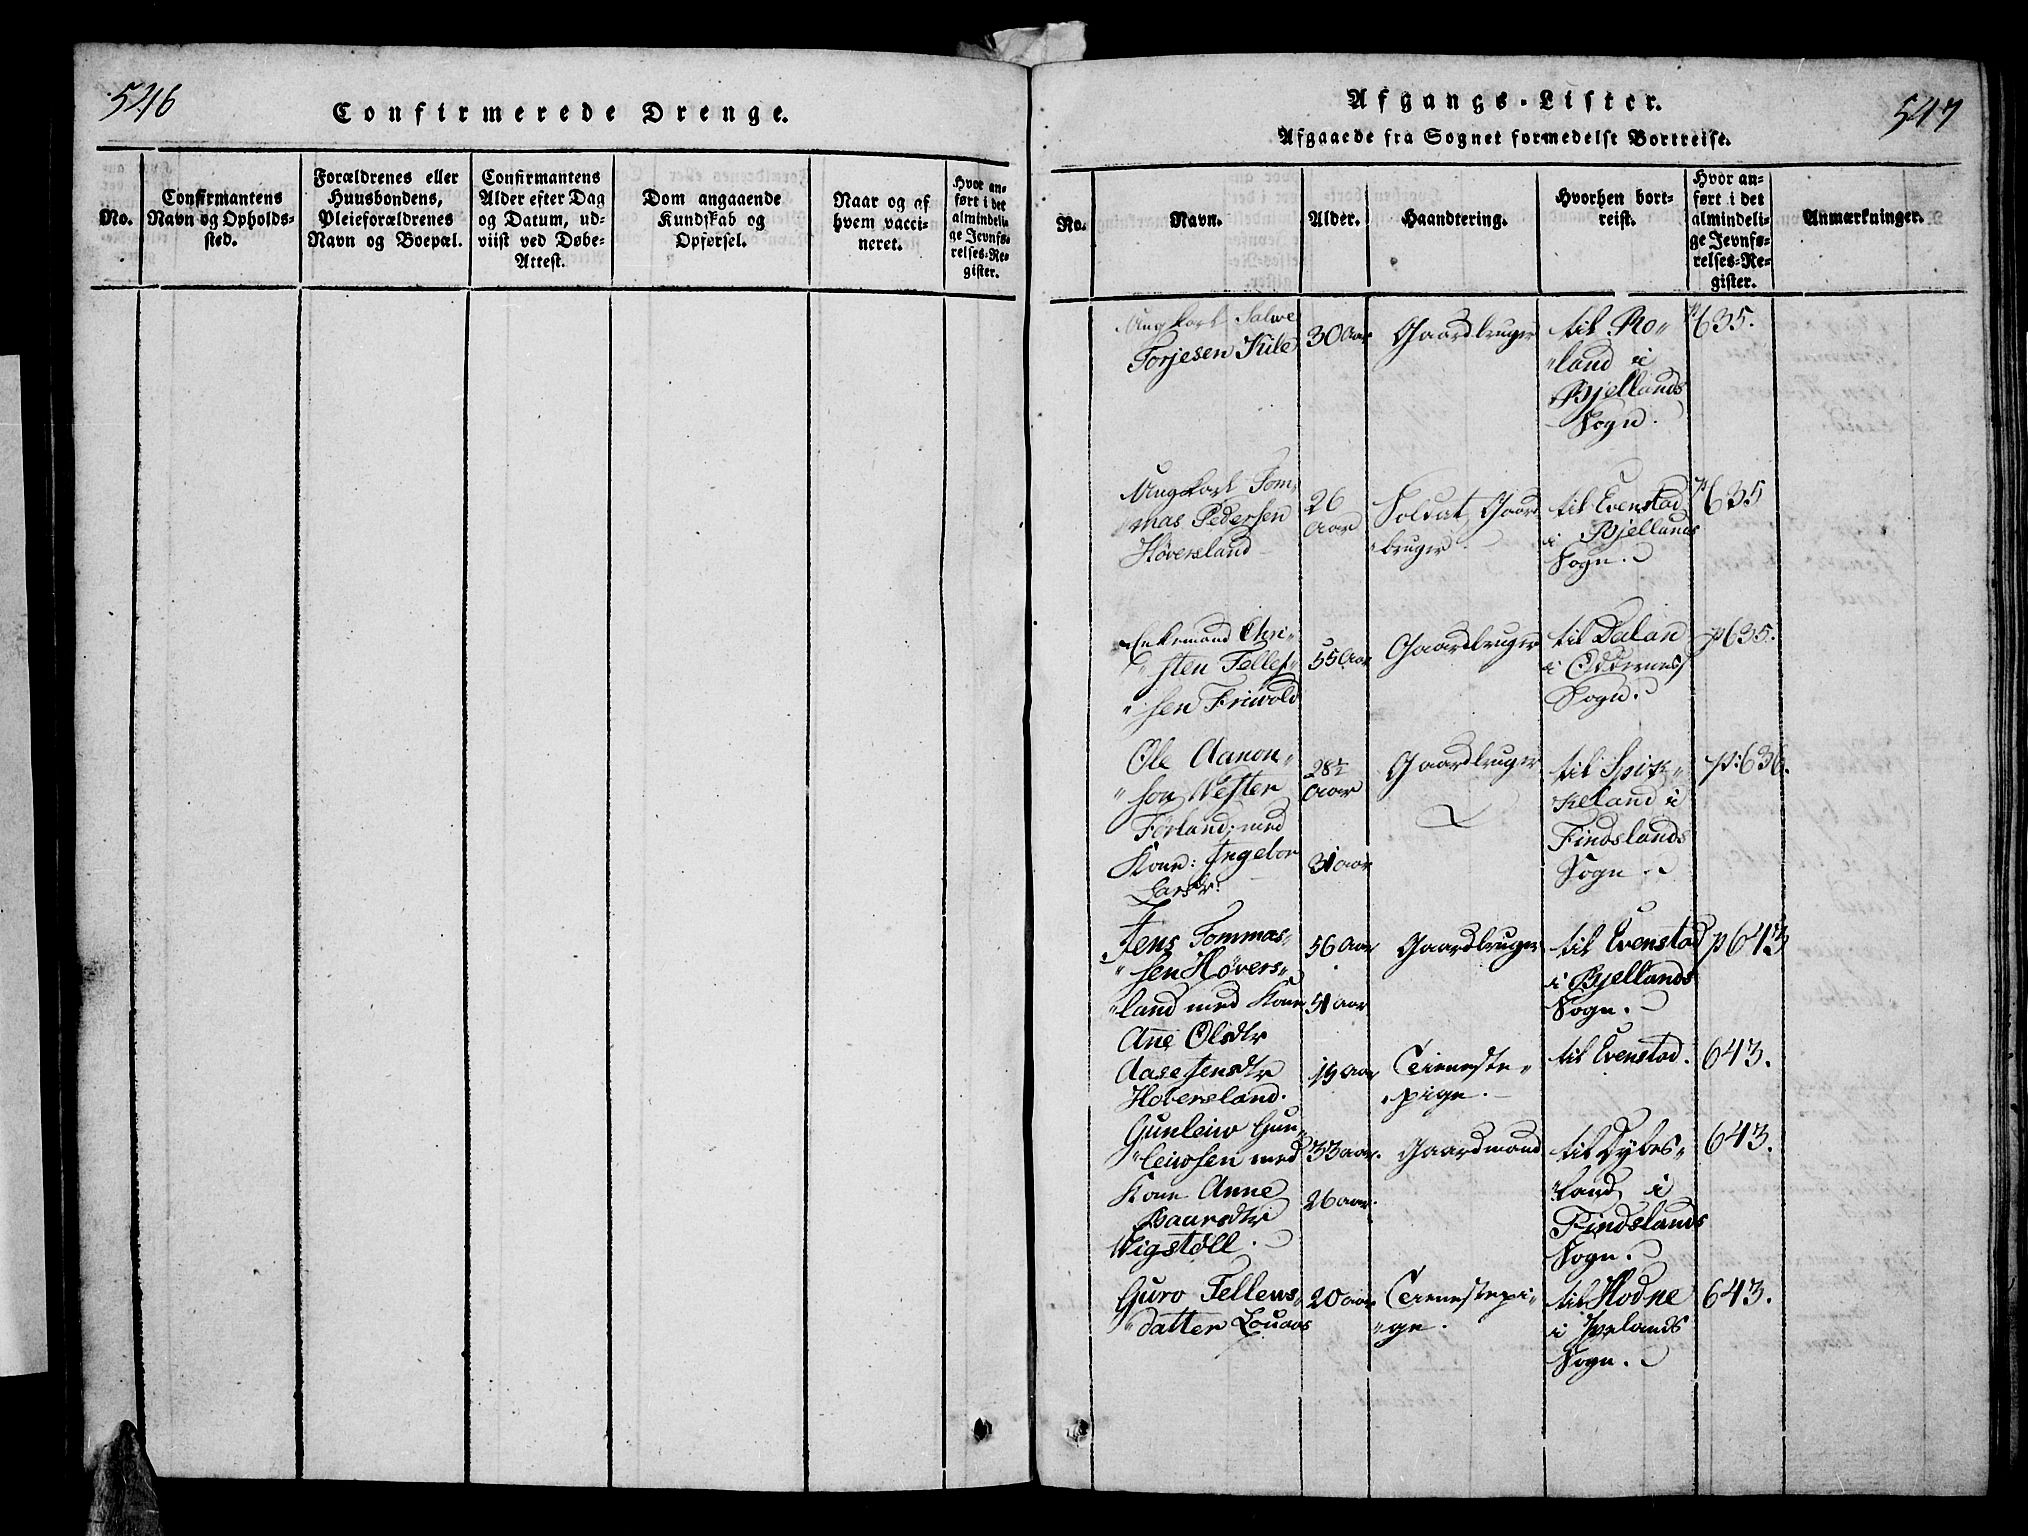 546
Confirmerede Drenge.
No.
Confirmantens
Navn og Opholds-
sted.
Forældrenes eller
Huusbondens,
Pleieforældrenes
Navn og Boepæl.
Confirmantens
Alder efter Dag
og Datum, ud-
viist ved Døbe-
Attest.
Dom angaaende
Kundskab og
Opførsel.
Naar og af
hvem vacci-
neret.
Hvor an-
ført i det
almindeli-
ge Jevnfø-
relses-Re-
gister.
547
Afgangs-Lister.
Afgaaede fra Sognet formedelst Bortreise.
No.
Navn.
Alder.
Haandtering.
Hvorhen bort-
reist.
Hvor an-
ført i det
almindeli-
ge Jevnfø-
relses-Re-
gister.
Anmærkninger.
Ungkarl Salve
Torjesen Kile
30 Aar
Gaardbruger
til Ro-
land i
Bjellands
Sogn.
p635.
Ungkarl Tom-
mas Pedersen
Høversland
26
Aar
Soldat, Gaard
bruger
til Evenstad
i Bjellands
Sogn.
p635
Enkemand Chri-
sten Tellef-
sen Friwold
55 Aar
Gaardbruger
til Dalan
i Oddernes
Sogn.
p635.
Ole Aanon-
son Westen
Førland, med
Kone: Ingebor
Larsdr:
28½
Aar
31 aar
Gaardbruger
til Spik-
keland i
Findslands
Sogn.
p:636.
Jens Tommas-
sen Høvers-
land med Kone
Ane Olsdtr
56 Aar
51 aar
Gaardbruger
til Evenstad
i Bjellands
Sogn.
p643
Aase Jensdtr
Høversland.
19 Aar
Tieneste-
pige.
til Evenstad.
643.
Gunleiw Gun-
leiwsen med
Kone Anne
Baarsdtr
Wigstøll.
33 aar.
26 aar.
Gaardmand
til Dybes-
land i
Findslands
Sogn.
643.
Guro Tellews-
datter Louaas
20 aar
Tienestepi-
ge.
til Hodne
i Ivelands
Sogn.
643.